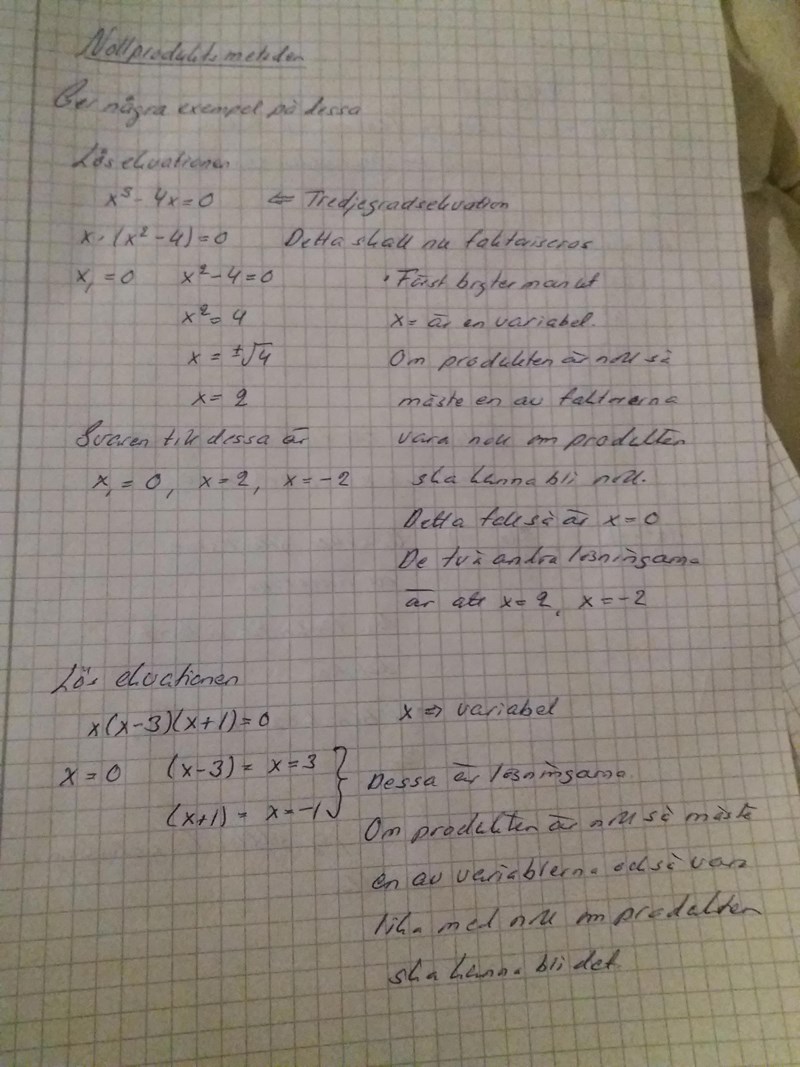 Nollproduktsmetoden
Ger några exempel på dessa
Lös ekvationen
x³ - 4x = 0 ⇐ Tredjegradsekvation
x · (x² - 4) = 0 Detta skall nu faktoriseras
x₁ = 0 x² - 4 = 0 · Först bryter man ut
x² = 4 x = är en variabel.
x = ±√4 Om produkten är noll så
x = 2 måste en av faktorerna
Svaren till dessa är vara noll om produkten
x₁ = 0, x = 2, x = -2 ska kunna bli noll.
Detta också är x = 0
De två andra lösningarna
är att x = 2, x = -2
Lös ekvationen
x(x-3)(x+1) = 0 x ⇒ variabel
x = 0 (x-3) = x = 3 } Dessa är lösningarna
(x+1) = x = -1
Om produkten är noll så måste
en av variablerna också vara
lika med noll om produkten
ska kunna bli det